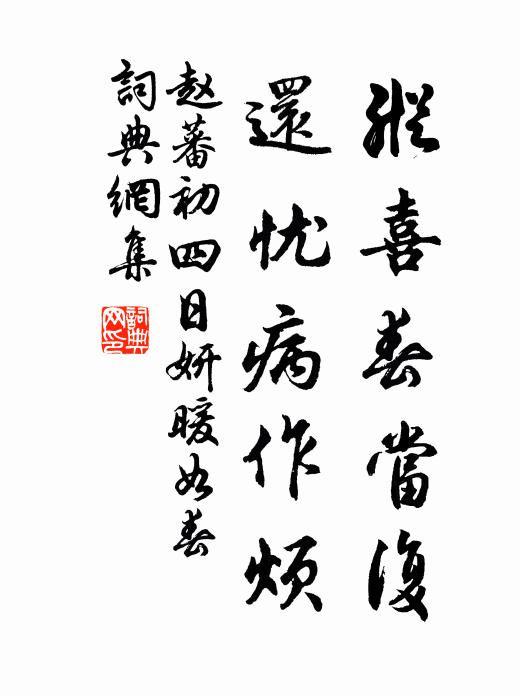 縱喜春當復
還忧病作煩
赵蕃初四日妍暖如春
詞典網集
詞典网印